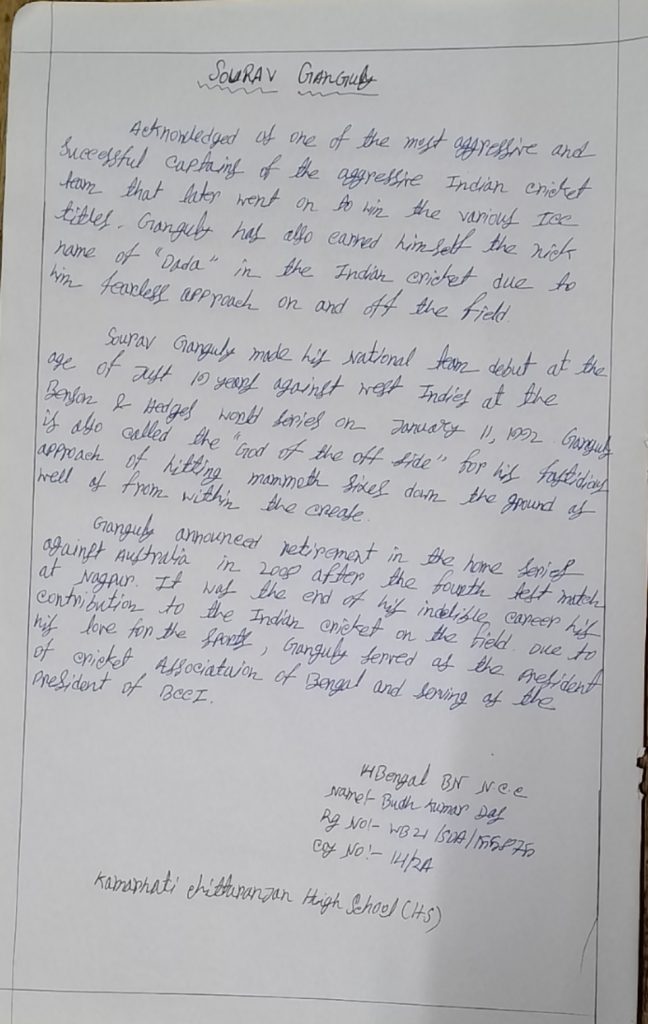 SOURAV GANGULY
Acknowledged as one of the most aggressive and
successful captains of the aggressive Indian cricket
team that later went on to win the various ICC
titles. Ganguly has also earned himself the nick
name of "Dada" in the Indian cricket due to
him fearless approach on and off the field.
Sourav Ganguly made his National team debut at the
age of just 19 years against west Indies at the
Benson & Hedges World Series on January 11, 1992. Ganguly
is also called the "God of the off side" for his fastidious
approach of hitting mammoth sixes down the ground as
well as from within the crease.
Ganguly announced retirement in the home series
against Australia in 2008 after the fourth test match
at Nagpur. It was the end of his indelible career his
contribution to the Indian cricket on the field. Due to
his love for the sports, Ganguly served as the president
of cricket Association of Bengal and serving as the
president of BCCI.
Bengal BN NCC
Name:- Budh Kumar Das
Rg No:- WB21/SDA/
Coy No:- 14/2A
Chittaranjan High School (HS)